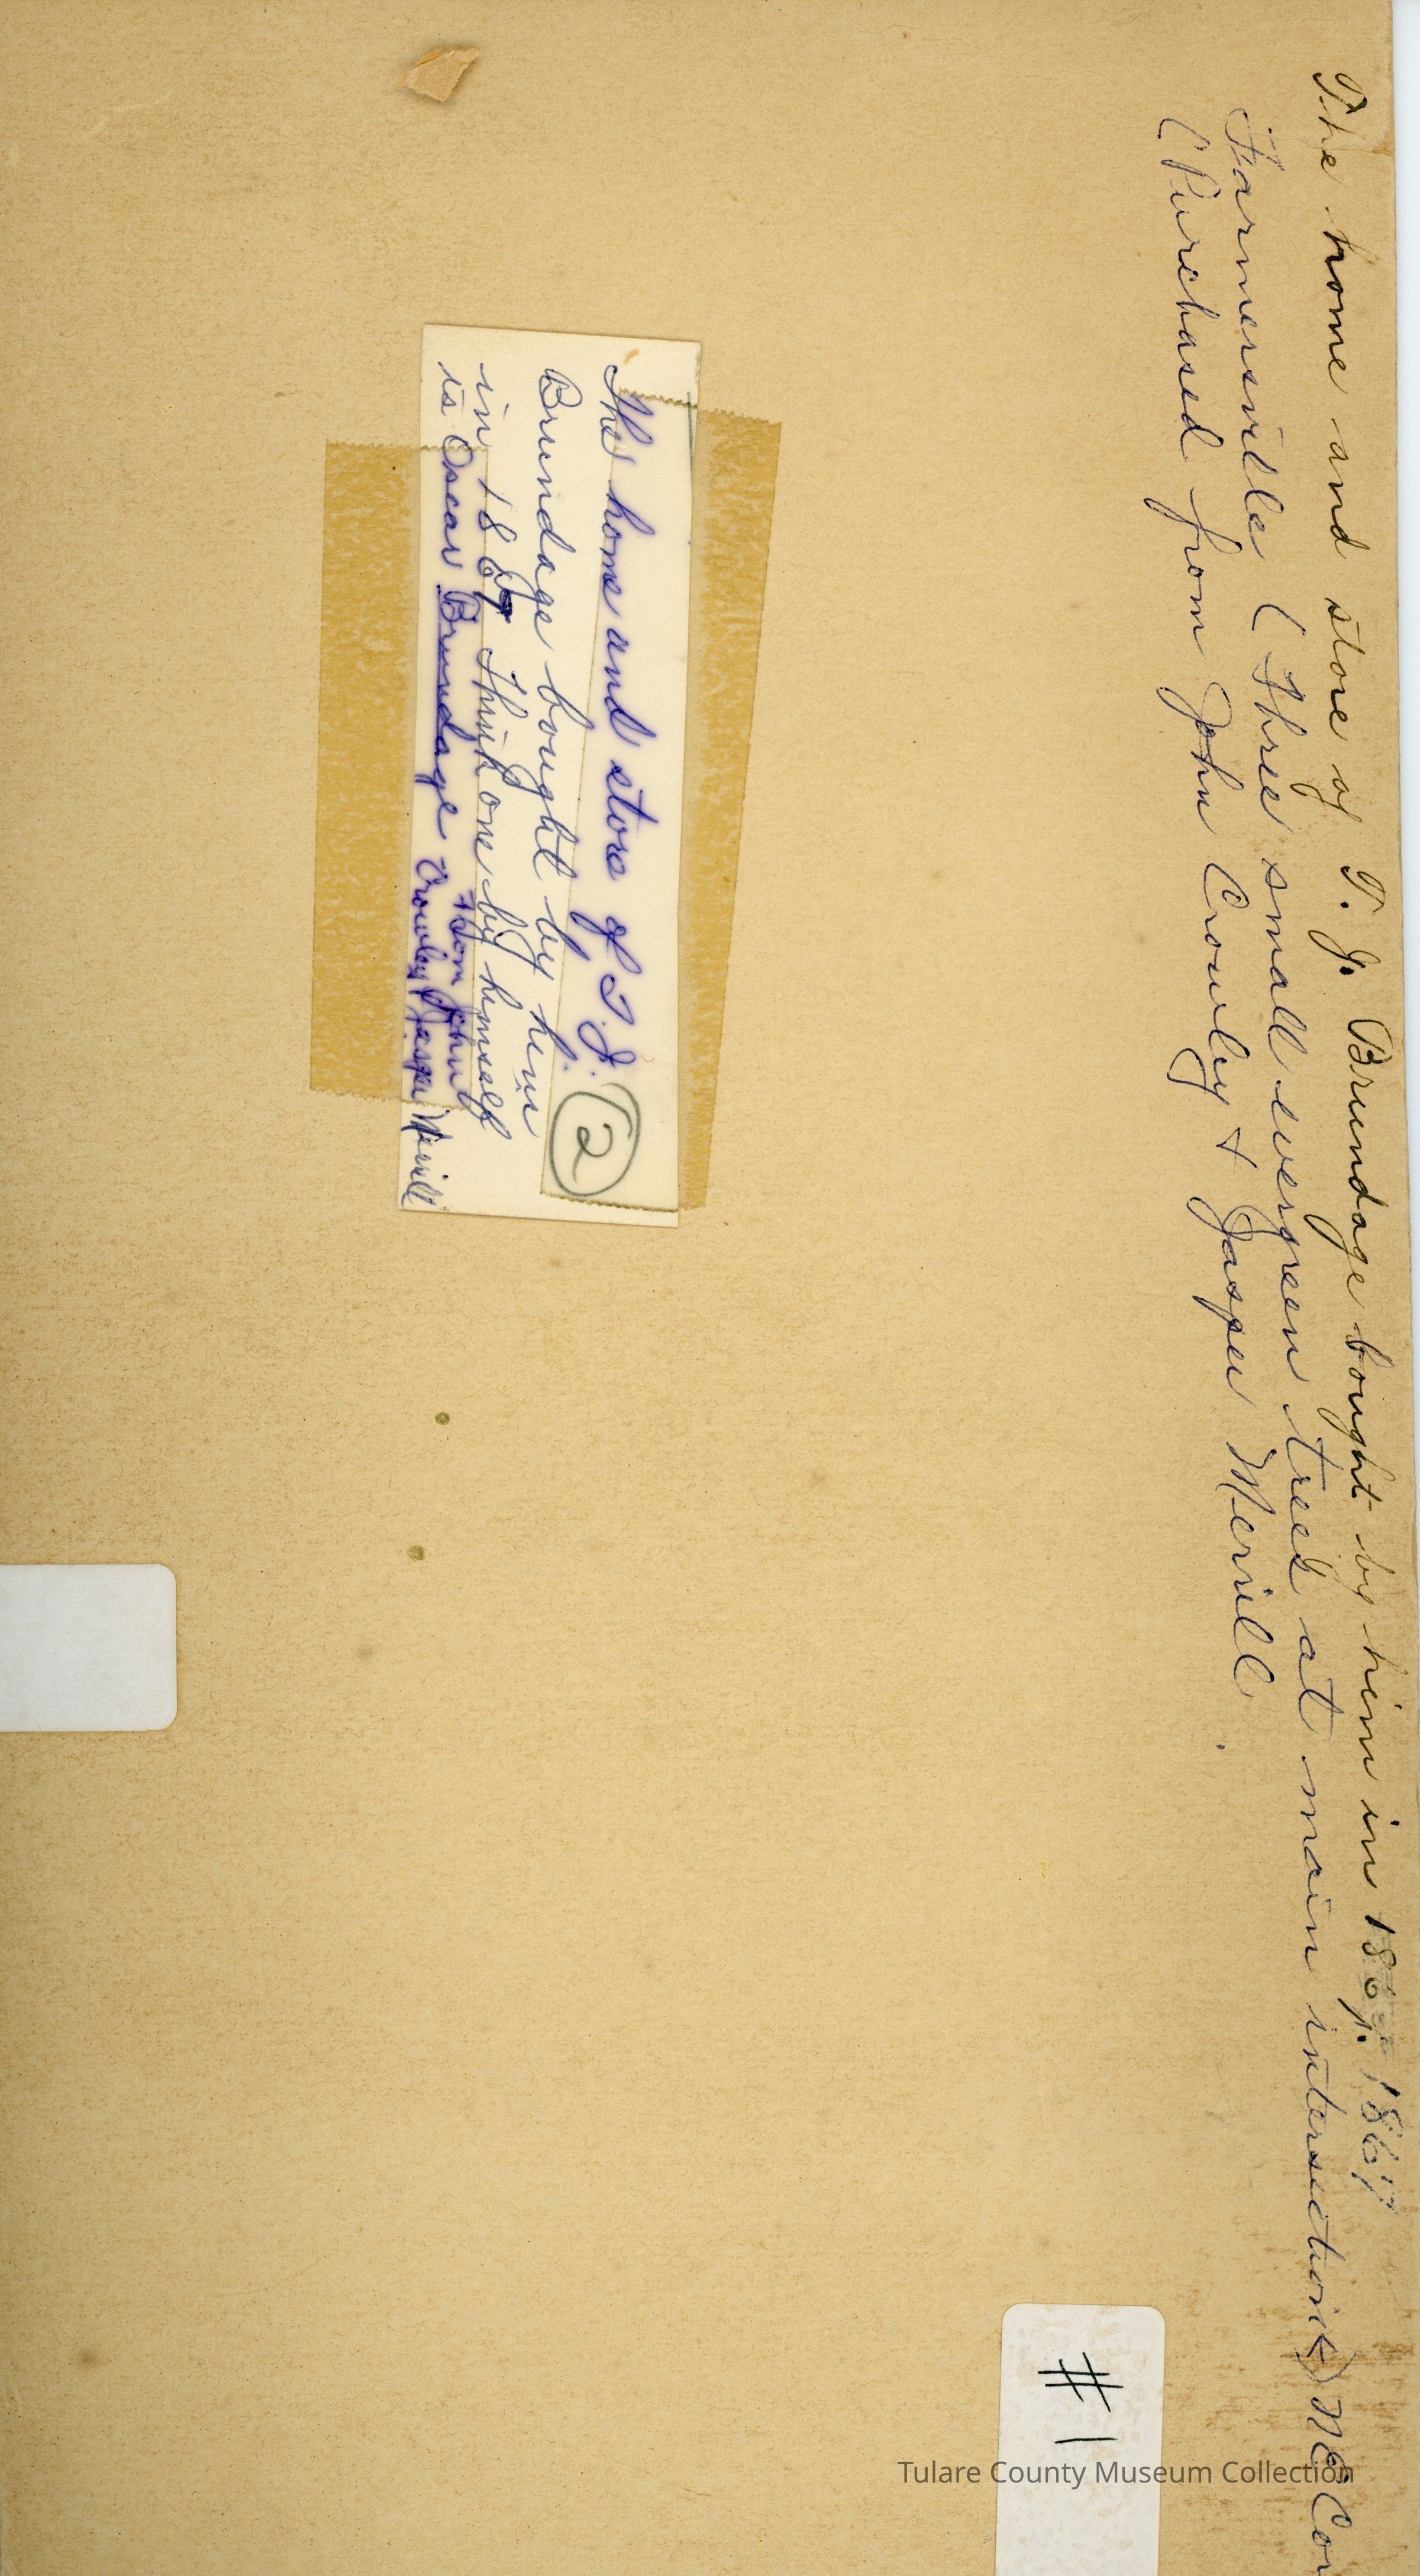 The home and store of T. J. Brundage bought by him in 1867. 1867
Farmersville (Three small evergreen trees at main intersection) NE Cor
(Purchased from John Crowley + Jasper Merrill.
The home and store of T. J.
Brundage bought by him
in 1867 think one by himself
is Oscar Brundage
+ Tom
Crowley + Jasper Merrill
2
#1
Tulare County Museum Collection